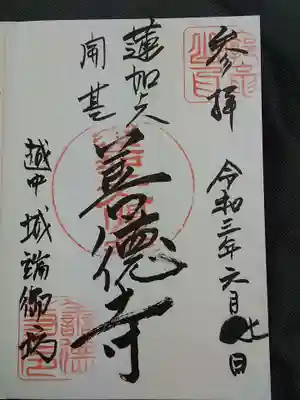 参拝
令和三年六月七日
蓮如上人
開基
善徳寺
越中城端御坊